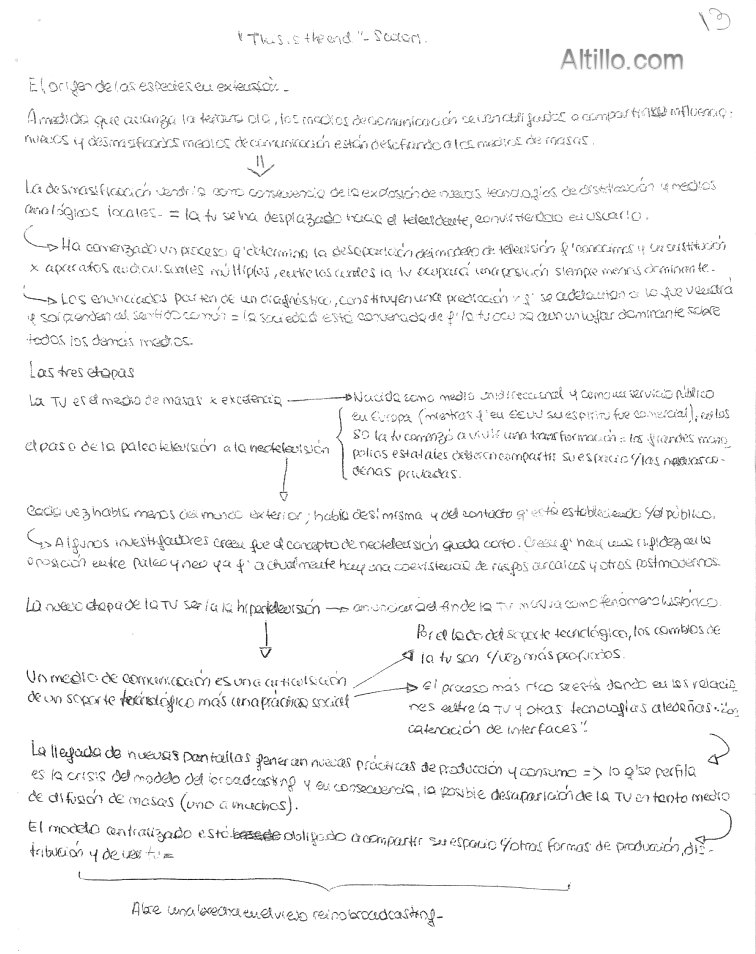 13
"This is the end" - Scolari.
Altillo.com
El origen de las especies en extensión -
A medida que avanza la tercera ola, los medios de comunicación se ven obligados a compartir su influencia:
nuevos y desmasificados medios de comunicación están desafiando a los medios de masas.
La desmasificación vendría como consecuencia de la explosión de nuevas tecnologías de distribución y medios
analógicos locales - = la tv se ha desplazado hacia el televidente, convirtiendo en usuario.
Ha comenzado un proceso q' determina la desaparición del modelo de televisión q' conocimos y su sustitución
x aparatos audiovisuales múltiples, entre los cuales la tv ocupará una posición siempre menos dominante.
Los enunciados parten de un diagnóstico, constituyen una predicación y q' se adelantan a lo que vendrá
y sorprenden al sentido común = la sociedad está convencida de q' la tv ocupa aun un lugar dominante sobre
todos los demás medios.
Las tres etapas
La TV es el medio de masas x excelencia
Nacida como medio unidireccional y como un servicio público
en Europa (mientras q' en EEUU su espíritu fue comercial), en los
80 la tv comenzó a vivir una transformación = los grandes mono
polios estatales debieron compartir su espacio c/ las nuevas ca-
denas privadas.
el paso de la paleotelevisión a la neotelevisión
Cada vez habla menos del mundo exterior; habla de sí misma y del contacto q' está estableciendo c/ el público.
Algunos investigadores creen que el concepto de neotelevisión queda corto. Creen q' hay una rigidez en la
oposición entre paleo y neo ya q' actualmente hay una coexistencia de rasgos arcaicos y otros postmodernos.
La nueva etapa de la TV sería la hipertelevisión anunciaría el fin de la TV masiva como fenómeno histórico.
Por el lado del soporte tecnológico, los cambios de
la tv son c/vez más profundos.
Un medio de comunicación es una articulación
de un soporte tecnológico más una práctica social
El proceso más rico se está dando en las relacio
nes entre la TV y otras tecnologías aledañas = "con
catenación de interfaces".
La llegada de nuevas pantallas generan nuevas prácticas de producción y consumo => lo q' se perfila
es la crisis del modelo del broadcasting y en consecuencia, la posible desaparición de la TV en tanto medio
de difusión de masas (uno a muchos).
El modelo centralizado está obligado a compartir su espacio c/otras formas de producción, dis-
tribución y de ver tv =
Abre una brecha en el viejo reino broadcasting -